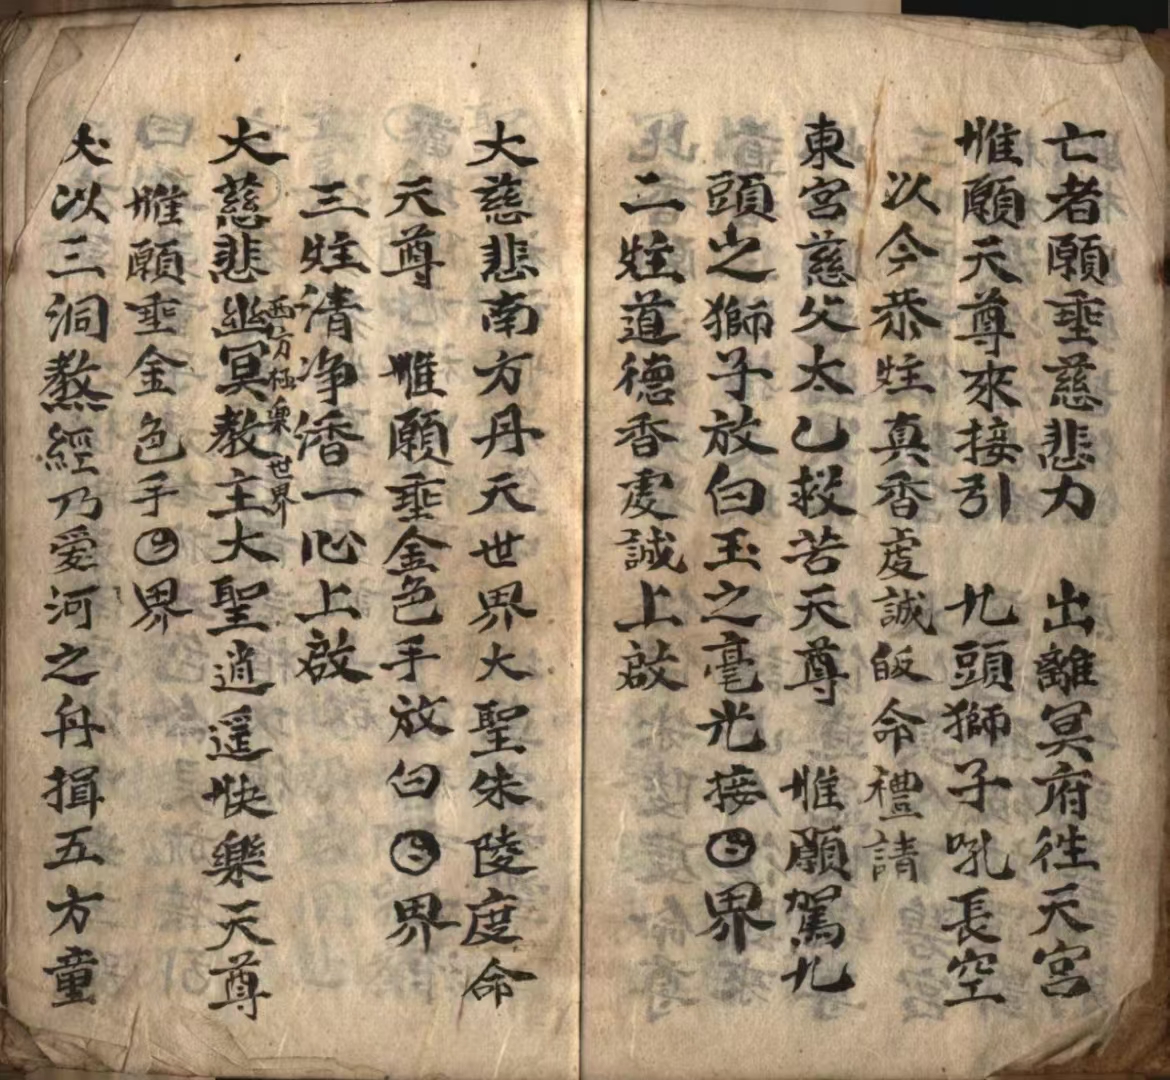 亡者願垂慈悲力　出離冥府徃天宮
惟願天尊來接引　九頭獅子吼長空
以今恭炷真香虔誠皈命禮請
東宮慈父太乙救苦天尊　惟願駕九
頭之獅子放白玉之毫光接㊁界
二炷道德香虔誠上啟
大慈悲南方丹天世界大聖朱陵度命
天尊　惟願垂金色手放白㊁界
三炷清净香一心上啟
西方極樂世界
大慈悲幽冥教主大聖逍遥快樂天尊
惟願垂金色手㊁界
夫以三洞教經乃爱河之舟揖五方童